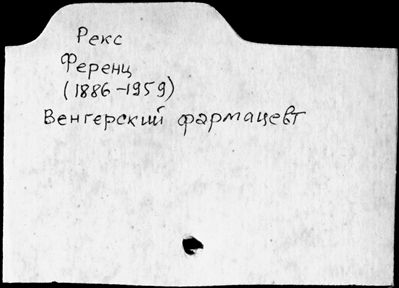 Рекс
Ференц
(1886-1959)
Венгерский фармацевт